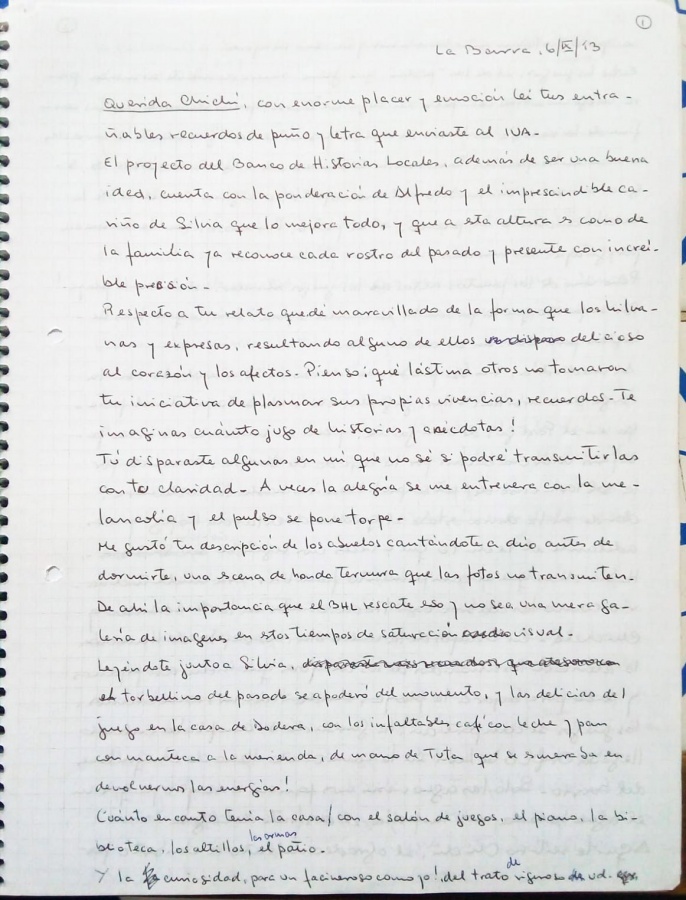 1
La Barra, 6/IX/13
Querida Chichí, con enorme placer y emoción leí tus entra-
ñables recuerdos de puño y letra que enviaste al IUA.
El proyecto del Banco de Historias Locales, además de ser una buena
idea, cuenta con la ponderación de Alfredo y el imprescindible ca-
riño de Silvia que lo mejora todo, y que a esta altura es como de
la familia ya reconoce cada rostro del pasado y presente con increí-
ble precisión.
Respecto a tu relato quedé maravillado de la forma que los hilva-
nas y expresas, resultando alguno de ellos un disparo delicioso
al corazón y los afectos. Pienso; qué lástima otros no tomaron
tu iniciativa de plasmar sus propias vivencias, recuerdos. Te
imaginas cuánto jugo de historias y anécdotas!
Tú disparaste algunas en mí que no sé si podré transmitirlas
con tu claridad. A veces la alegría se me entrevera con la me-
lancolía y el pulso se pone torpe.
Me gustó tu descripción de los abuelos cantándote a dúo antes de
dormirte, una escena de honda ternura que las fotos no transmiten.
De ahí la importancia que el BHL rescate eso y no sea una mera ga-
lería de imagenes en estos tiempos de saturación audiovisual.
Leyéndote junto a Silvia,
el torbellino del pasado se apoderó del momento, y las delicias del
juego en la casa de Dodera, con los infaltables café con leche y pan
con manteca a la merienda, de mano de Tota que se esmeraba en
devolvernos las energías!
Cuánto encanto tenía la casa! con el salón de juegos, el piano, la bi-
blioteca, los altillos, las armas el patio.
Y la curiosidad, para un facineroso como yo! del trato riguroso de ud.